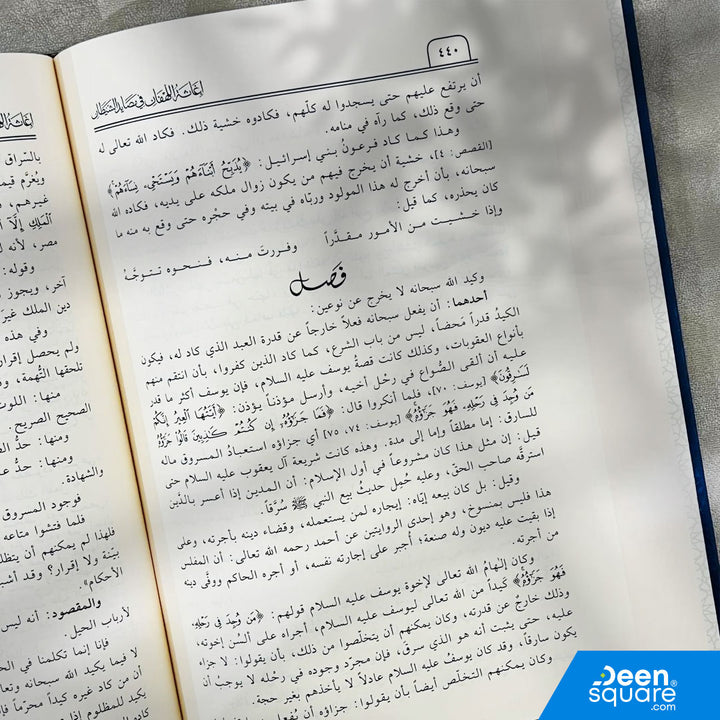 ٤٤٠
إغاثة اللهفان في مصايد الشيطان
أن يرتفع عليهم حتى يسجدوا له كلّهم، فكادوه خشية ذلك. فكاد الله تعالى له
حتى وقع ذلك، كما رآه في منامه.
وهذا كما كاد فرعونُ بني إسرائيل: ﴿يُذَبِّحُ أَبْنَآءَهُمْ وَيَسْتَحْيِۦ نِسَآءَهُمْ﴾
[القصص: ٤]، خشية أن يخرج فيهم من يكون زوال ملكه على يديه، فكاده الله
سبحانه، بأن أخرج له هذا المولود وربّاه في بيته وفي حجْره حتى وقع به منه ما
كان يحذره، كما قيل:
وإذا خشيت من الأمور مقدَّراً وفررتَ منه، فنحوه تتوجَّهُ
فَصل
وكيد الله سبحانه لا يخرج عن نوعين:
أحدهما: أن يفعل سبحانه فعلاً خارجاً عن قدرة العبد الذي كاد له، فيكون
الكيدُ قدراً مَحضاً، ليس من باب الشرع، كما كاد الذين كفروا، بأن انتقم منهم
بأنواع العقوبات، وكذلك كانت قصةُ يوسف عليه السلام، فإن يوسف أكثر ما قدر
عليه أن ألقى الصُّواع في رحْل أخيه، وأرسل مؤذناً يؤذن: ﴿أَيَّتُهَا ٱلْعِيرُ إِنَّكُمْ
لَسَٰرِقُونَ﴾ [يوسف: ٧٠]، فلما أنكروا قال: ﴿فَمَا جَزَٰٓؤُهُۥٓ إِن كُنتُمْ كَٰذِبِينَ قَالُوا۟ جَزَٰٓؤُهُۥ
مَن وُجِدَ فِى رَحْلِهِۦ فَهُوَ جَزَٰٓؤُهُۥ﴾ [يوسف: ٧٤، ٧٥] أي جزاؤه استعبادُ المسروق ماله
للسارق: إما مطلقاً وإما إلى مدة. وهذه كانت شريعة آل يعقوب عليه السلام حتى
قيل: إن مثل هذا كان مشروعاً في أول الإسلام: أن المدين إذا أعسر بالدَّين
استرقّه صاحب الحقّ، وعليه حُمِل حديثُ بيع النبي ﷺ سُرَّقاً.
وقيل: بل كان بيعه إيّاه: إيجاره لمن يستعمله، وقضاء دينه بأجرته، وعلى
هذا فليس بمنسوخ، وهو إحدى الروايتين عن أحمد رحمه الله تعالى: أن المفلس
إذا بقيت عليه ديون وله صنعة؛ أُجبر على إجارته نفسه، أو أجره الحاكم ووفّى دينه
من أجرته.
وكان إلهامُ الله تعالى لإخوة يوسف عليه السلام قولهم: ﴿مَن وُجِدَ فِى رَحْلِهِۦ
فَهُوَ جَزَٰٓؤُهُۥ﴾ كيداً من الله تعالى ليوسف عليه السلام، أجراه على ألسُن إخوته،
وذلك خارج عن قدرته، وكان يمكنهم أن يتخلّصوا من ذلك، بأن يقولوا: لا جزاء
عليه، حتى يثبت أنه هو الذي سرق، فإن مجرّد وجوده في رحْله لا يوجب أن
يكون سارقاً، وقد كان يوسفُ عليه السلام عادلاً لا يأخذهم بغير حجة.
وكان يمكنهم التخلّص أيضاً بأن يقولوا: جزاؤه أن يُفعل
بالسّراق
ويُغرَّم قيمة
غيرهم،
مصر، لأنه
وقوله:
آخر، ويجوز
دين الملك غير
وفي هذه
ولم يحصل إقرار
تلحقها التُّهمة،
منها: اللوث
الصحيح الصريح.
ومنها: حدُّ
ومنها: حدُّ
والشهادة.
فوجود المسروق
فلما فتشوا متاعه
فلهذا لم يمكنهم أن يتظلموا
بيّنة ولا إقرار؟ وقد أشبع
الأحكام».
والمقصود: أنه ليس
لأرباب الحيل.
فإنا إنما تكلمنا في
لا فيما يكيد الله سبحانه وتعالى
أن من كاد غيره كيداً محرّماً
يكيد للمظلوم إذا
Deen
square®
.com